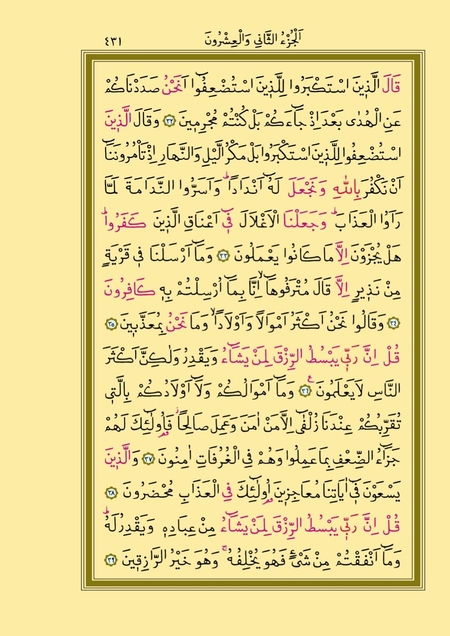 اَلْجُزْءُ الثَّانِي وَالْعِشْرُونَ
٤٣١
قَالَ الَّذِينَ اسْتَكْبَرُوا لِلَّذِينَ اسْتُضْعِفُوٓا اَنَحْنُ صَدَدْنَاكُمْ
عَنِ الْهُدٰى بَعْدَ اِذْ جَٓاءَكُمْ بَلْ كُنْتُمْ مُجْرِمِينَ ﴿٣٢﴾ وَقَالَ الَّذِينَ
اسْتُضْعِفُوا لِلَّذِينَ اسْتَكْبَرُوا بَلْ مَكْرُ الَّيْلِ وَالنَّهَارِ اِذْ تَأْمُرُونَنَٓا
اَنْ نَكْفُرَ بِاللّٰهِ وَنَجْعَلَ لَهُٓ اَنْدَادًاۜ وَاَسَرُّوا النَّدَامَةَ لَمَّا
رَاَوُا الْعَذَابَۜ وَجَعَلْنَا الْاَغْلَالَ فِٓي اَعْنَاقِ الَّذِينَ كَفَرُواۜ
هَلْ يُجْزَوْنَ اِلَّا مَا كَانُوا يَعْمَلُونَ ﴿٣٣﴾ وَمَٓا اَرْسَلْنَا فِي قَرْيَةٍ
مِنْ نَذِيرٍ اِلَّا قَالَ مُتْرَفُوهَٓاۙ اِنَّا بِمَٓا اُرْسِلْتُمْ بِهٖ كَافِرُونَ
﴿٣٤﴾ وَقَالُوا نَحْنُ اَكْثَرُ اَمْوَالًا وَاَوْلَادًاۙ وَمَا نَحْنُ بِمُعَذَّبِينَ ﴿٣٥﴾
قُلْ اِنَّ رَبِّي يَبْسُطُ الرِّزْقَ لِمَنْ يَشَٓاءُ وَيَقْدِرُ وَلٰكِنَّ اَكْثَرَ
النَّاسِ لَا يَعْلَمُونَ ﴿٣٦﴾ وَمَٓا اَمْوَالُكُمْ وَلَٓا اَوْلَادُكُمْ بِالَّتِي
تُقَرِّبُكُمْ عِنْدَنَا زُلْفٰٓى اِلَّا مَنْ اٰمَنَ وَعَمِلَ صَالِحًاۘ فَاُو۬لٰٓئِكَ لَهُمْ
جَزَٓاءُ الضِّعْفِ بِمَا عَمِلُوا وَهُمْ فِي الْغُرُفَاتِ اٰمِنُونَ ﴿٣٧﴾ وَالَّذِينَ
يَسْعَوْنَ فِٓي اٰيَاتِنَا مُعَاجِزِينَ اُو۬لٰٓئِكَ فِي الْعَذَابِ مُحْضَرُونَ ﴿٣٨﴾
قُلْ اِنَّ رَبِّي يَبْسُطُ الرِّزْقَ لِمَنْ يَشَٓاءُ مِنْ عِبَادِهٖ وَيَقْدِرُ لَهُۜ
وَمَٓا اَنْفَقْتُمْ مِنْ شَيْءٍ فَهُوَ يُخْلِفُهُۚ وَهُوَ خَيْرُ الرَّازِقِينَ ﴿٣٩﴾